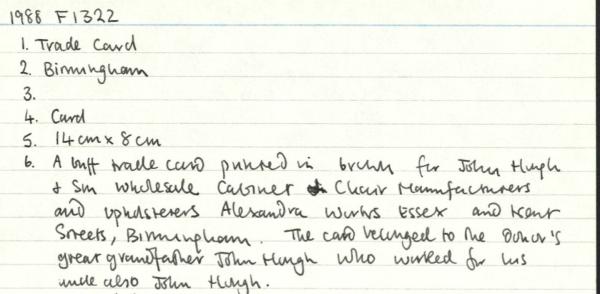 1988 F1322
1. Trade Card
2. Birmingham
3.
4. Card
5. 14cm x 8cm
6. A buff trade card printed in brown for John Hugh
& Son Wholesale Cabinet & Chair Manufacturers
and upholsterers Alexandra Works Essex and Kent
Streets, Birmingham. The card belonged to the Donor's
great grandfather John Hugh who worked for his
uncle also John Hugh.